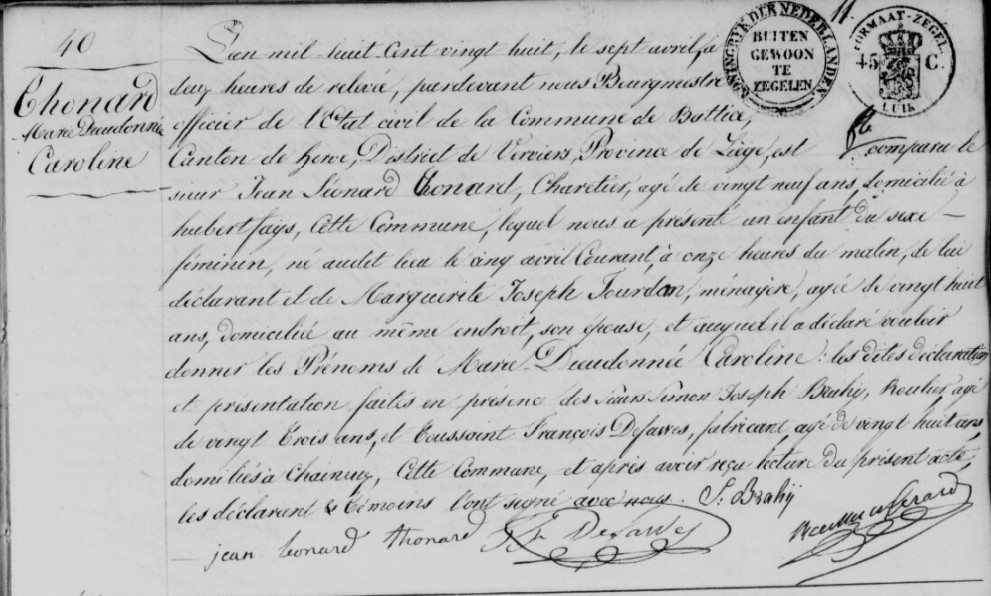 40
Thonard
Marie Dieudonnée
Caroline
KONINGRYK DER NEDERLANDEN
BUITEN
GEWOON
TE
ZEGELEN
FORMAAT-ZEGEL
45 C.
LUIK
L'an mil huit cent vingt huit, le sept avril, à
deux heures de relevée, pardevant nous Bourgmestre
officier de l'Etat civil de la Commune de Battice,
Canton de herve, District de Verviers, Province de Liège, est comparu le
sieur Jean Léonard Thonard, Charetier, agé de vingt neuf ans, domicilié à
hubert fays, Cette Commune, lequel nous a présenté un enfant du sexe —
féminin, né audit lieu le cinq avril Courant, à onze heures du matin, de lui
déclarant et de Marguerite Joseph Jourdan, ménajère, agée de vingt huit
ans, domiciliée au même endroit, son épouse, et auquel il a déclaré vouloir
donner les Prénoms de Marie Dieudonnée Caroline : les dites déclaration
et présentation faites en présence des Sieurs Simon Joseph Brahy, Roulier, agé
de vingt Trois ans, et Toussaint François Desarves, fabricant, agé de vingt huit ans
domiliés à Chaineux, Cette Commune, et après avoir reçu lecture du présent acte,
les déclarant & Témoins l'ont signé avec nous. S: Brahij
jean leonard thonard